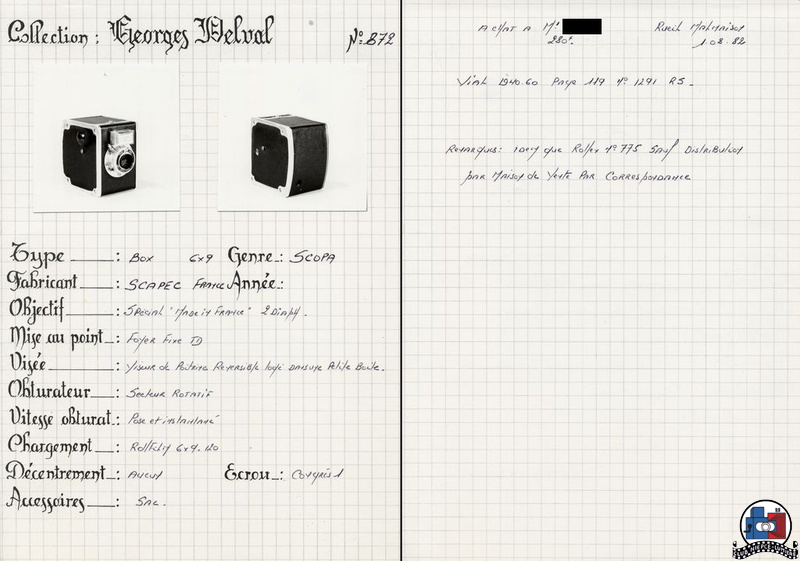 Collection : Georges Delval Nº: 872
Type : Box 6x9 Genre : SCOPA
Fabricant : SCAPEC France Année :
Objectif : Spécial "Made in France" 2 Diaph.
Mise au point : Foyer Fixe
Visée : Viseur de Poitrine Reversible logé dans une Petite Boîte.
Obturateur : Secteur Rotatif
Vitesse obturat. : Pose et instantané
Chargement : Rollfilm 6x9. 120
Décentrement : Aucun Ecrou : Congrès 1
Accessoires : Sac.
Achat à Mr Rueil Malmaison
280f. 1.08.82
Vial 1940.60 Page 119 Nº 1291 RS.
Remarques: Idem que Rolfex Nº 775 Sauf Distribution
par Maison de Vente Par Correspondance